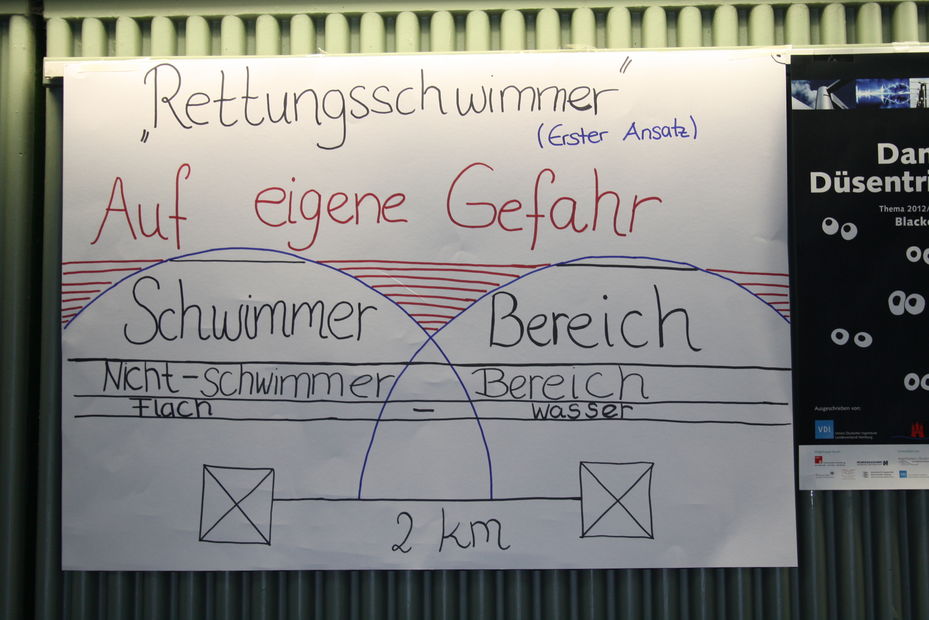 „Rettungsschwimmer“
(Erster Ansatz)
Auf eigene Gefahr
Schwimmer Bereich
Nicht-schwimmer Bereich
Flach - wasser
2 km
Dar
Düsentri
Thema 2012/
Black
Ausgeschrieben von:
VDI